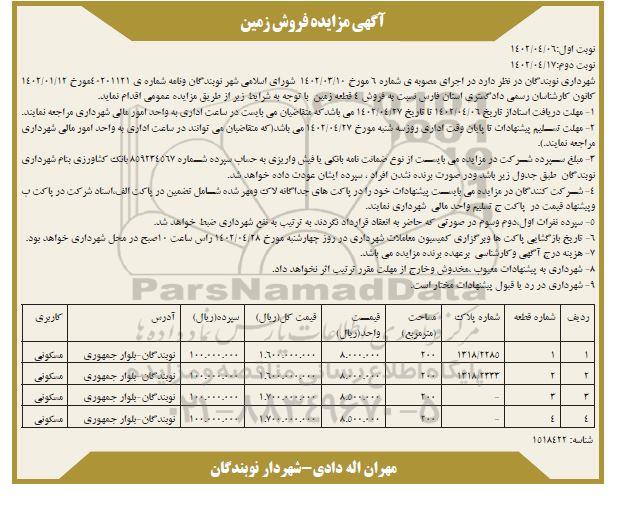 آگهی مزایده فروش زمین
نوبت اول:۱۴۰۲/۰۴/۰۶
نوبت دوم:۱۴۰۲/۰۴/۱۷
شهرداری نوبندگان در نظر دارد در اجرای مصوبه ی شماره ۶ مورخ ۱۴۰۲/۰۳/۱۰ شورای اسلامی شهر نوبندگان ونامه شماره ی ۴۰۲۰۱۱۲۱مورخ ۱۴۰۲/۰۱/۱۲
کانون کارشناسان رسمی دادگستری استان فارس نسبت به فروش ٤ قطعه زمین با توجه به شرایط زیر از طریق مزایده عمومی اقدام نماید.
۱- مهلت دریافت اسناداز تاریخ ۱۴۰۲/۰۴/۰۶ تا تاریخ ۱۴۰۲/۰۴/۲۷ می باشد که متقاضیان می بایست در ساعت اداری به واحد امور مالی شهرداری مراجعه نمایند.
۲- مهلت تسلیم پیشنهادات تا پایان وقت اداری روزسه شنبه مورخ ۱۴۰۲/۰۴/۲۷ می باشد(که متقاضیان می توانند در ساعت اداری به واحد امور مالی شهرداری
مراجعه نمایند.)
۳- مبلغ سپرده شرکت در مزایده می بایست از نوع ضمانت نامه بانکی یا فیش واریزی به حساب سپرده شماره ۸۵۹۲۳۴۵۶۷ بانک کشاورزی بنام شهرداری
نوبندگان طبق جدول زیر باشد ودر صورت برنده نشدن افراد ، سپرده ایشان عودت داده خواهد شد.
۴- شرکت کنندگان در مزایده می بایست پیشنهادات خود را در پاکت های جداگانه لاک ومهر شده شامل تضمین در پاکت الف،اسناد شرکت در پاکت ب
وپیشنهاد قیمت در پاکت ج تسلیم واحد مالی شهرداری نمایند.
۵- سپرده نفرات اول،دوم وسوم در صورتی که حاضر به انعقاد قرارداد نگردند به ترتیب به نفع شهرداری ضبط خواهد شد.
۶- تاریخ بازگشایی پاکت ها وبرگزاری کمیسیون معاملات شهرداری در روز چهارشنبه مورخ ۱۴۰۲/۰۴/۲۸ راس ساعت ۱۰صبح در محل شهرداری خواهد بود.
۷- هزینه درج آگهی وکارشناسی برعهده برنده مزایده می باشد.
۸- شهرداری به پیشنهادات معیوب ،مخدوش وخارج از مهلت مقرر ترتیب اثر نخواهد داد.
۹- شهرداری در رد یا قبول پیشنهادات مختار است.
ParsNamadData
ردیف شماره قطعه شماره پلاک مساحت (مترمربع) قیمت واحد(ریال) قیمت کل(ریال) سپرده(ریال) آدرس کاربری
۱ ۱ ۱۳۱۸/۲۲۸۵ ۲۰۰ ۸.۰۰۰.۰۰۰ ۱.۶۰۰.۰۰۰.۰۰۰ ۱۰۰.۰۰۰.۰۰۰ نوبندگان-بلوار جمهوری مسکونی
۲ ۲ ۱۳۱۸/۲۳۳۳ ۲۰۰ ۸.۰۰۰.۰۰۰ ۱.۶۰۰.۰۰۰.۰۰۰ ۱۰۰.۰۰۰.۰۰۰ نوبندگان-بلوار جمهوری مسکونی
۳ ۳ - ۲۰۰ ۸.۵۰۰.۰۰۰ ۱.۷۰۰.۰۰۰.۰۰۰ ۱۰۰.۰۰۰.۰۰۰ نوبندگان-بلوار جمهوری مسکونی
۴ ۴ - ۲۰۰ ۸.۵۰۰.۰۰۰ ۱.۷۰۰.۰۰۰.۰۰۰ ۱۰۰.۰۰۰.۰۰۰ نوبندگان-بلوار جمهوری مسکونی
پایگاه اطلاع رسانی مناقصه و مزایده
۰۲۱-۸۸۳۴۹۶۷۰-۵
شناسه: ۱۵۱۸۴۲۲
مهران اله دادی-شهردار نوبندگان